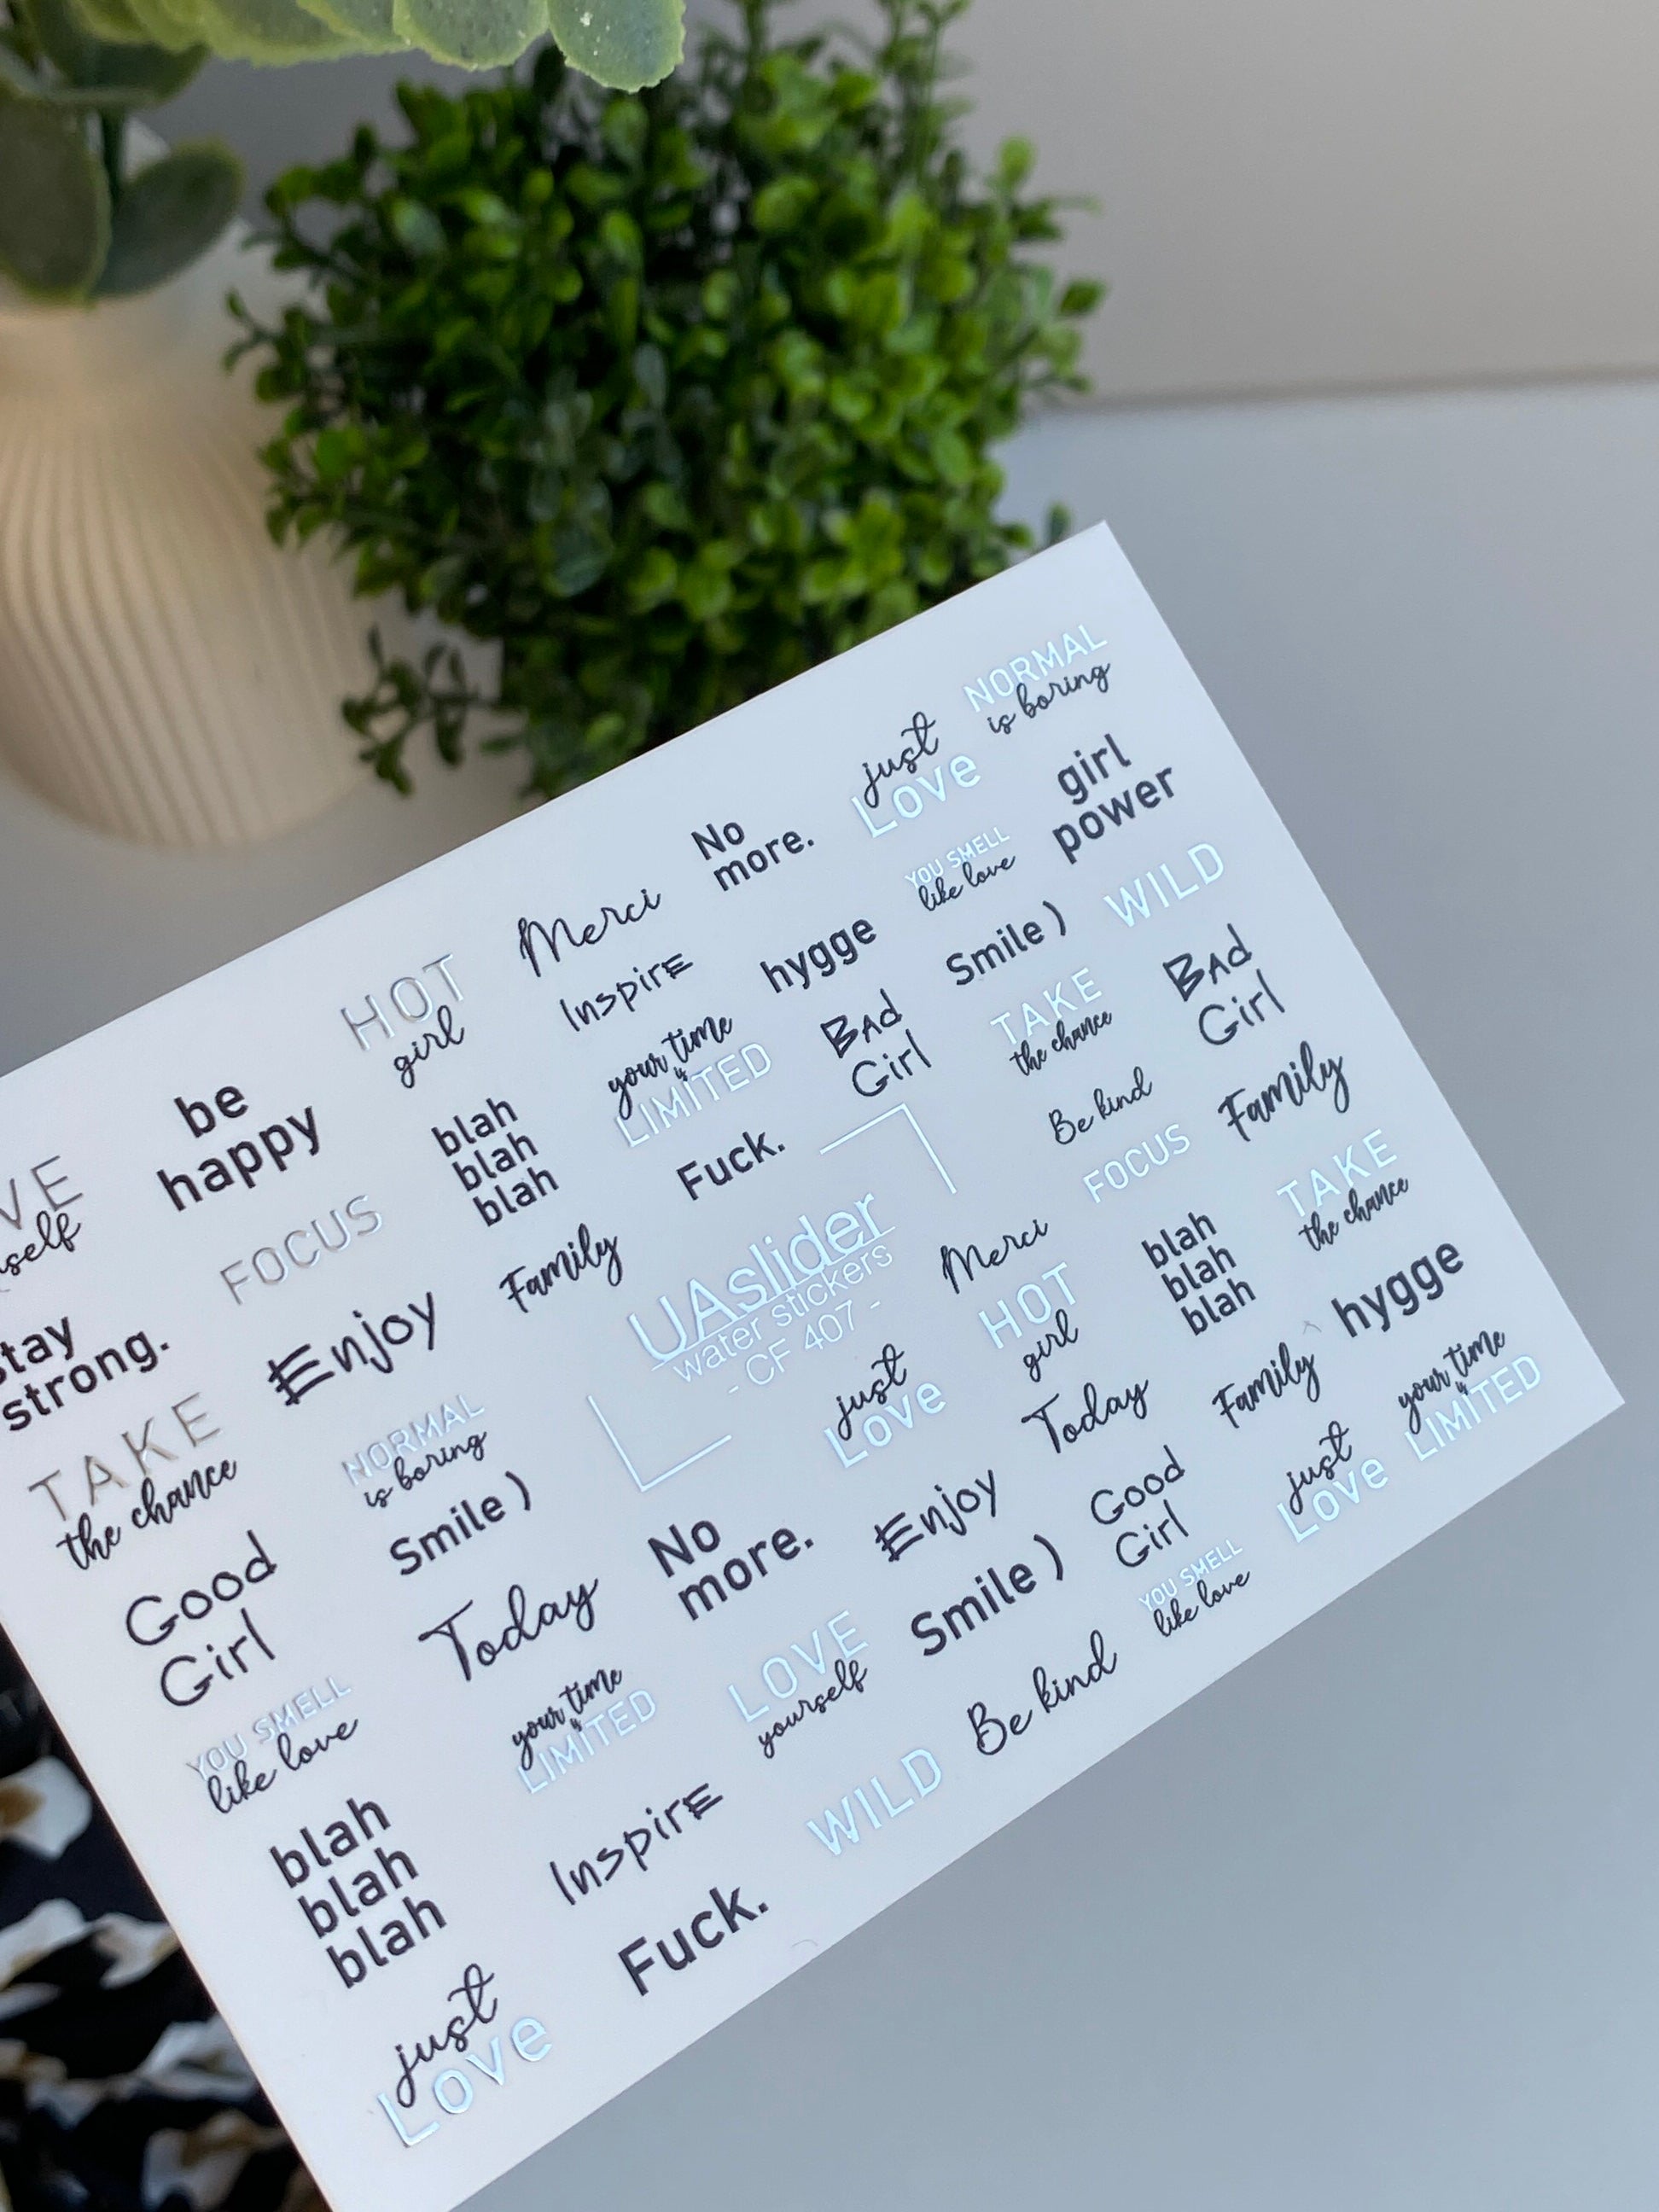 NORMAL
is boring
just
Love
girl
power
No
more.
YOU SMELL
like love
WILD
Merci
hygge
Smile )
BAd
Girl
HOT
girl
InspirE
your time
is
LIMITED
BAd
Girl
TAKE
the chance
Be kind
Family
be
happy
blah
blah
blah
Fuck.
FOCUS
TAKE
the chance
FOCUS
Family
UAslider
water stickers
- CF 407 -
Merci
blah
blah
blah
hygge
strong.
Enjoy
HOT
girl
just
Love
Today
Family
your time
is
LIMITED
TAKE
the chance
NORMAL
is boring
Smile )
No
more.
Enjoy
Good
Girl
just
Love
Good
Girl
Today
Smile )
YOU SMELL
like love
YOU SMELL
like love
your time
is
LIMITED
LOVE
yourself
Be kind
blah
blah
blah
InspirE
WILD
just
Love
Fuck.